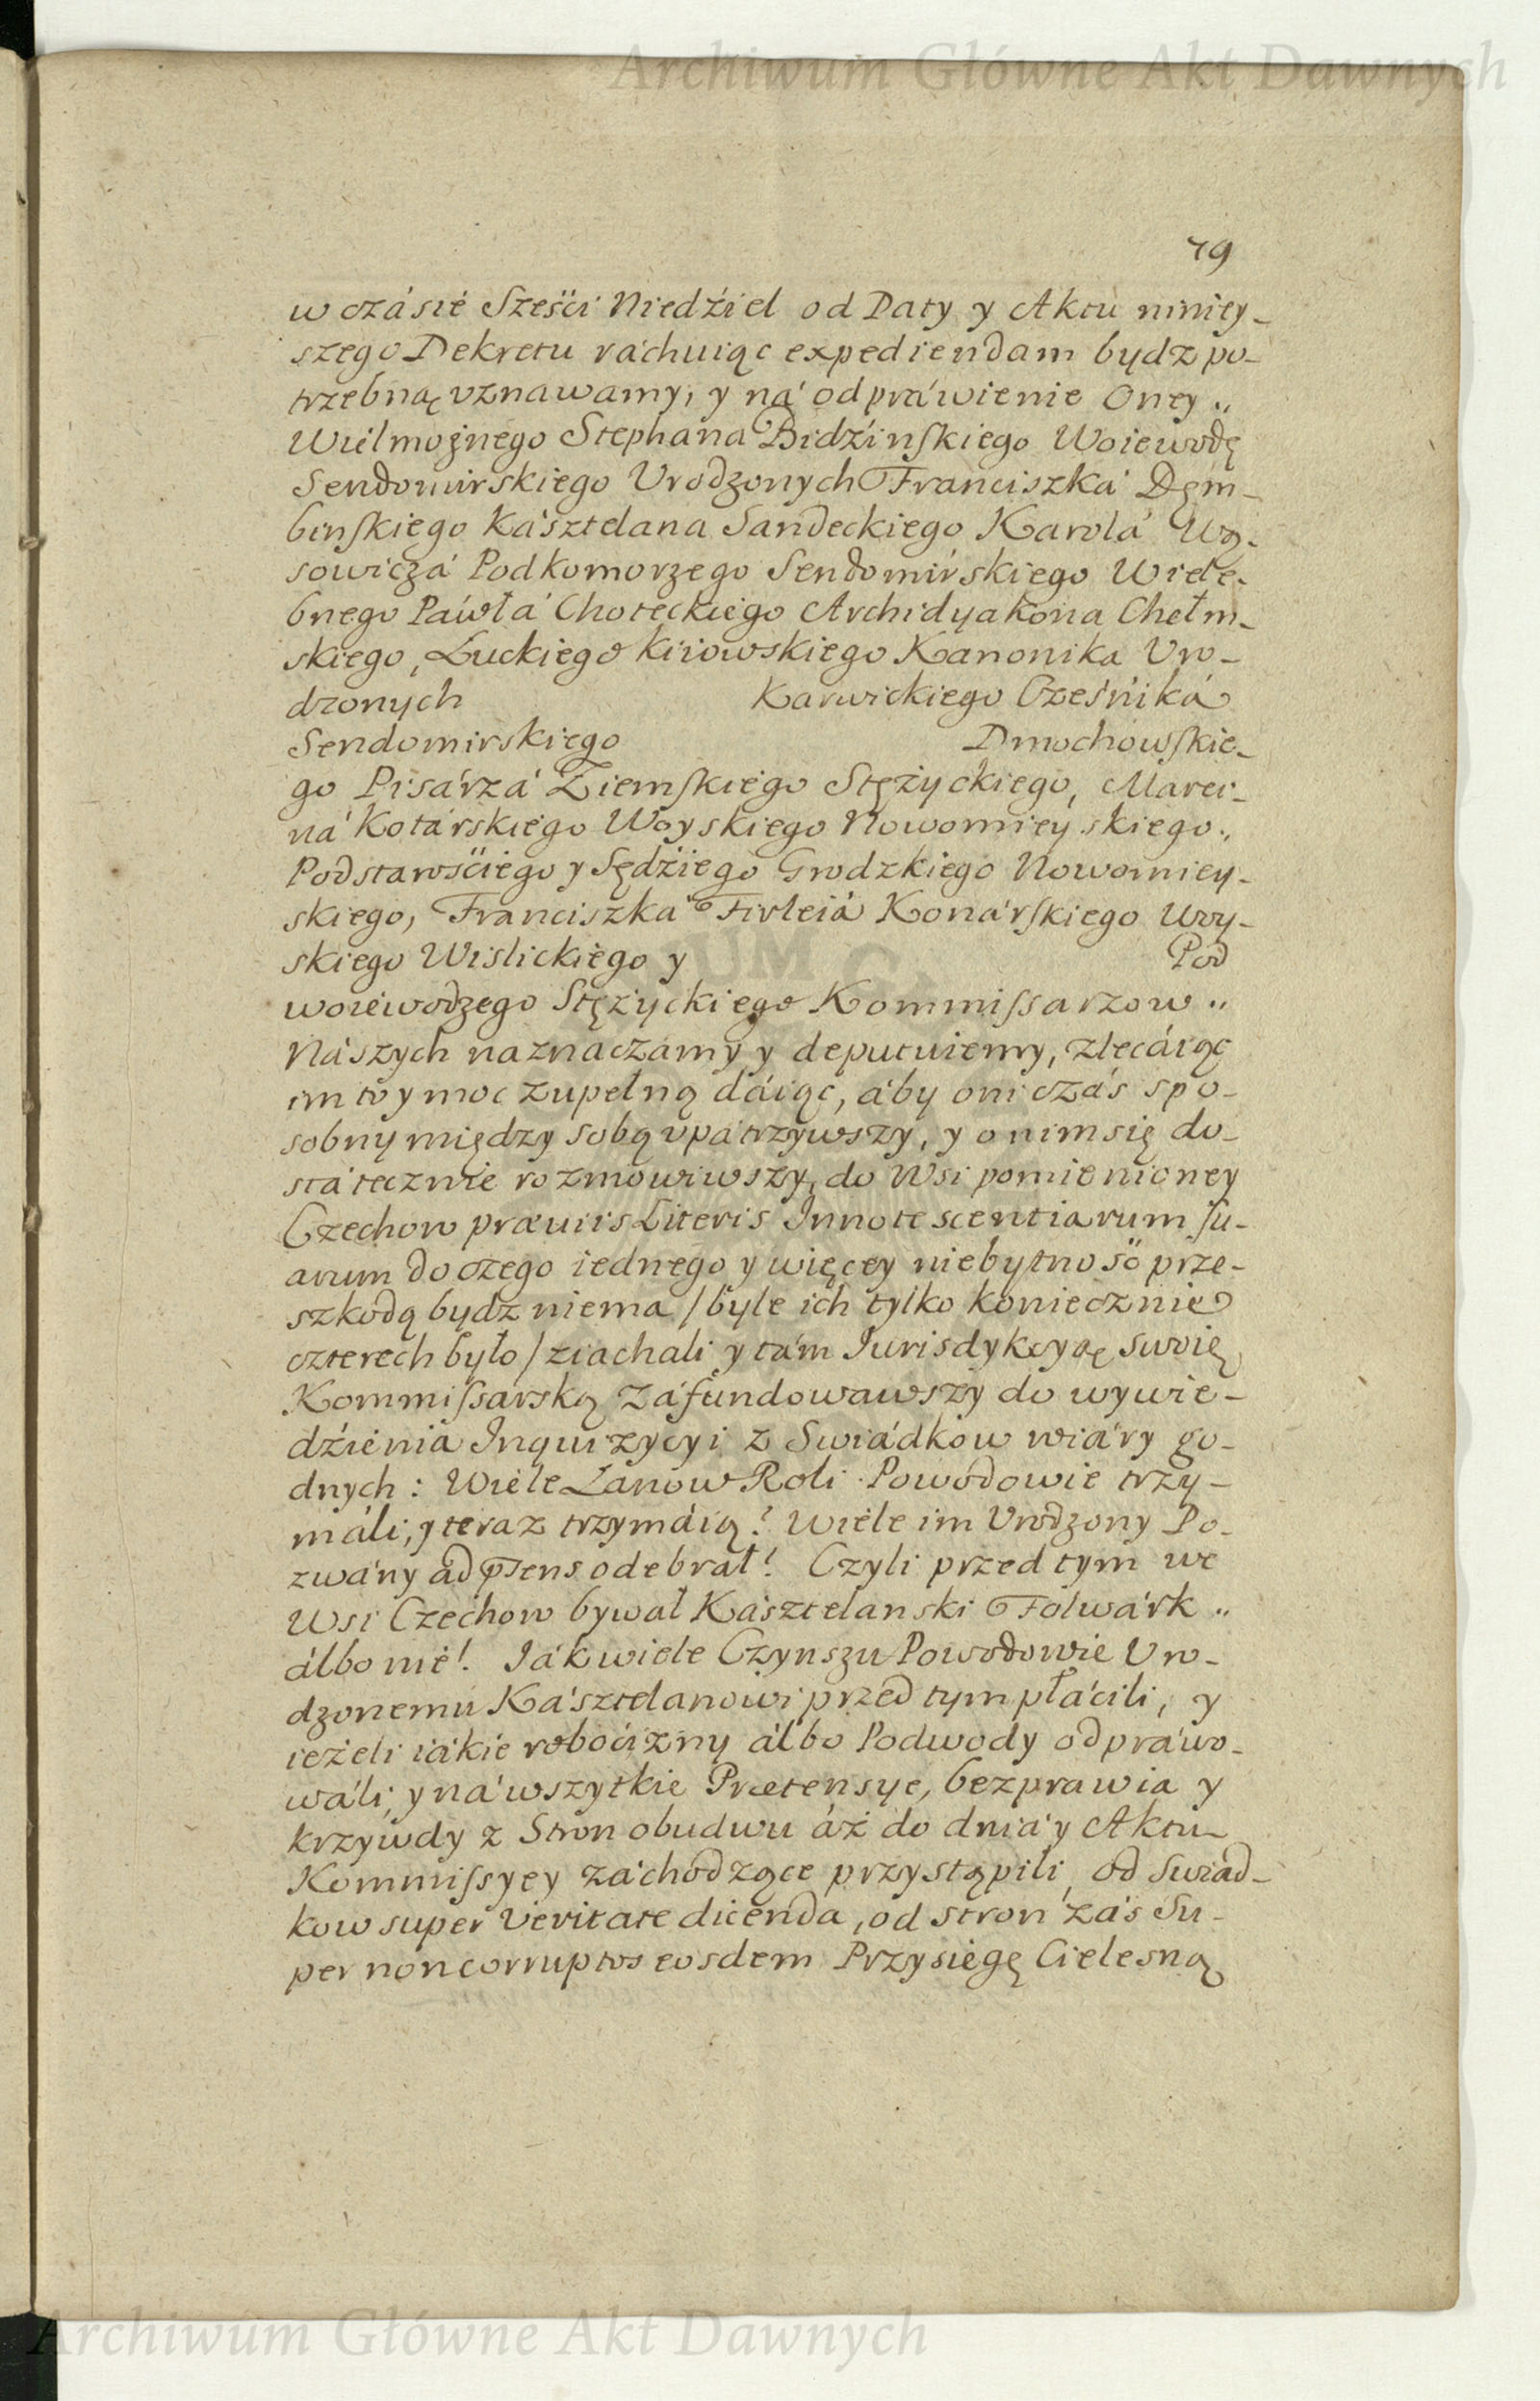 Archiwum Główne Akt Dawnych
79
w czásié Sześći Niedźiel od Daty y Aktu niniey-
szego Dekretu ráchuiąc expediendam bydz po-
trzebną vznawamy, y ná odpráwienie Oney „
Wielmożnego Stephana Bidźinskiego Woiewodę
Sendomirskiego Vrodzonych Franciszká Dęm-
binskiego Kásztelana Sandeckiego Karolá Wą-
sowiczá Podkomorzego Sendomirskiego Wiele-
bnego Páwłá Choteckiego Archidyakona Chełm-
skiego, Łuckiego Kiiowskiego Kanonika Vro-
dzonych Karwickiego Cześniká
Sendomirskiego Dmochowskie-
go Pisárzá Ziemskiego Stężyckiego, Marci-
ná Kotárskiego Woyskiego Nowomieyskiego „
Podstarośćiego y Sędźiego Grodzkiego Nowomiey-
skiego, Franciszka Firleiá Konárskiego Woy-
skiego Wislickiego y Pod
woiewodzego Stężyckiego Kommissarzow „
Nászych naznaczámy y deputuiemy, zlecáiąc
im to y moc zupełną dáiąc, áby oni czás spo-
sobny między sobą vpátrzywszy, y o nim się do-
státecznie rozmowiwszy, do Wsi pomienioney
Czechow præuiis Literis Innotescentiarum su-
arum do czego iednego y więcey niebytność prze-
szkodą bydz niema / byle ich tylko koniecznie
czterech było / ziachali y tám Iurisdykcyą swoię
Kommissarską záfundowawszy do wywie-
dźienia Inquizycyi z Swiádkow wiáry go-
dnych : Wiele Łanow Roli Powodowie trzy-
máli, y teraz trzymáią? Wiele im Vrodzony Po-
zwány ad præsens odebrał? Czyli przed tym we
Wsi Czechow bywał Kásztelanski Folwárk „
álbo nie? Iák wiele Czynszu Powodowie Vro-
dzonemu Kásztelanowi przed tym płácili, y
ieżeli iákie roboćizny álbo Podwody odpráwo-
wáli, y ná wszytkie Prætensye, bezprawia y
krzywdy z Stron obudwu áż do dniá y Aktu
Kommissyey záchodzące przystąpili, od Swiad-
kow super Veritate dicenda, od stron zás Su-
per non corruptos eosdem Przysięgę Cielesną
Archiwum Główne Akt Dawnych